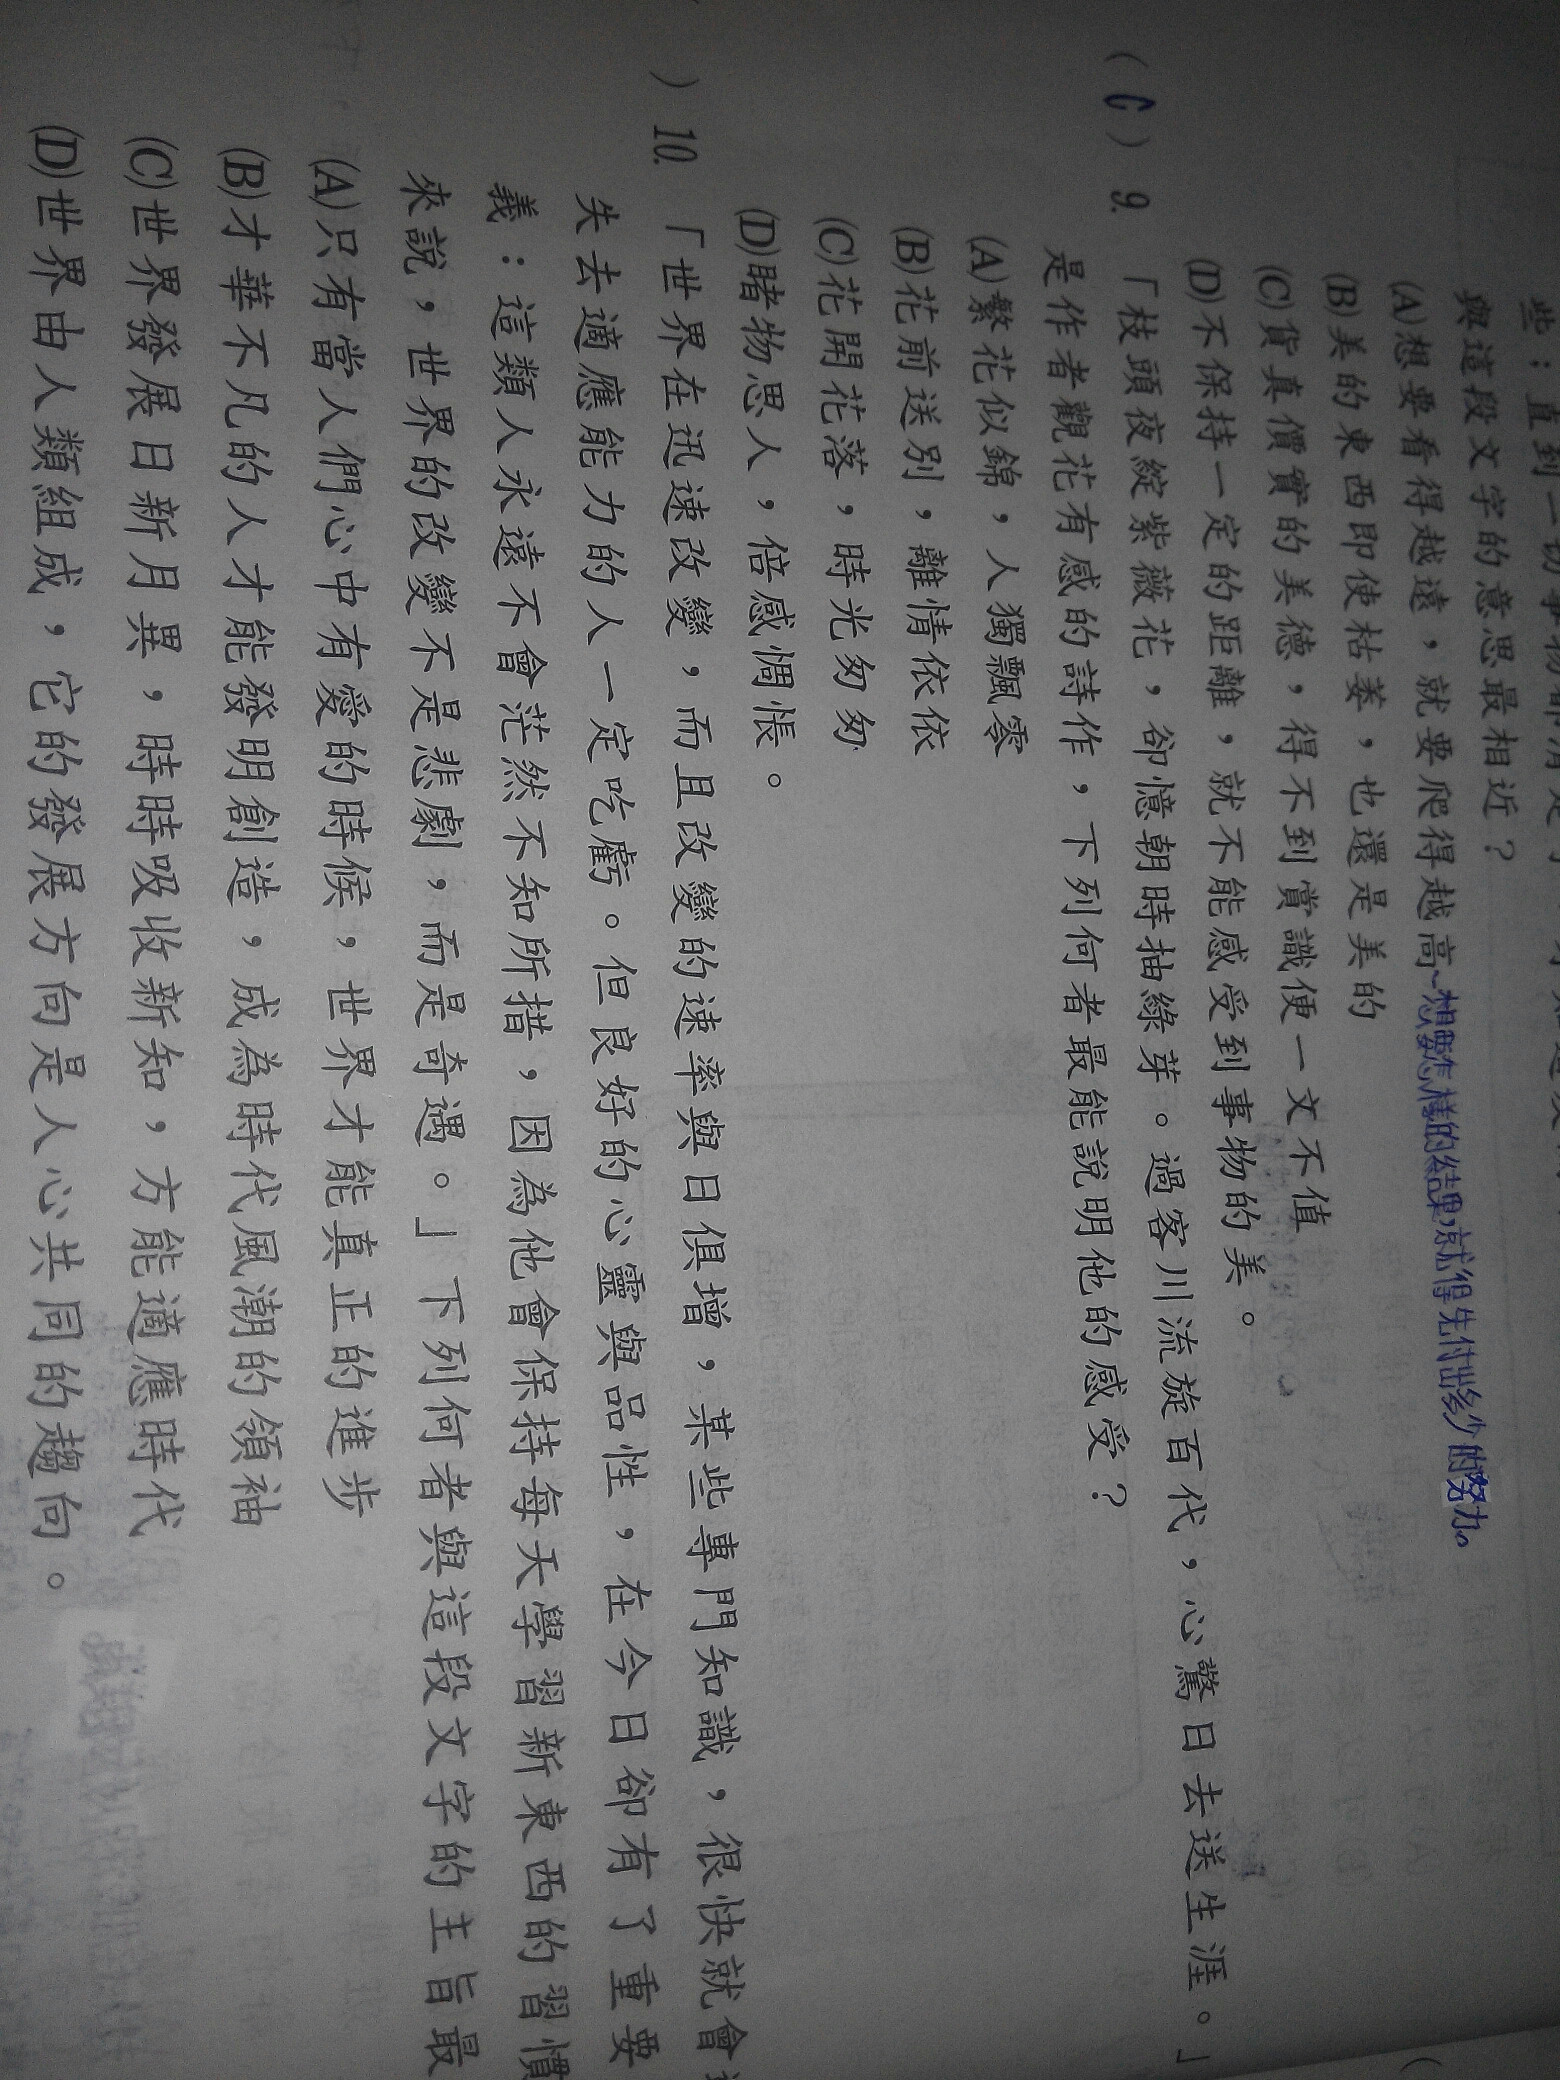 些：直到一切事物都
與這段文字的意思最相近？
(A)想要看得越遠，就要爬得越高~想要怎樣的結果，就得先付出多少的努力。
(B)美的東西即使枯萎，也還是美的
(C)貨真價實的美德，得不到賞識便一文不值
(D)不保持一定的距離，就不能感受到事物的美。
( C ) 9. 「枝頭夜綻紫薇花，卻憶朝時抽綠芽。過客川流旋百代，心驚日去送生涯。」
是作者觀花有感的詩作，下列何者最能說明他的感受？
(A)繁花似錦，人獨飄零
(B)花前送別，離情依依
(C)花開花落，時光匆匆
(D)睹物思人，倍感惆悵。
) 10. 「世界在迅速改變，而且改變的速率與日俱增，某些專門知識，很快就會
失去適應能力的人一定吃虧。但良好的心靈與品性，在今日卻有了重要
義：這類人永遠不會茫然不知所措，因為他會保持每天學習新東西的習慣
來說，世界的改變不是悲劇，而是奇遇。」下列何者與這段文字的主旨最
(A)只有當人們心中有愛的時候，世界才能真正的進步
(B)才華不凡的人才能發明創造，成為時代風潮的領袖
(C)世界發展日新月異，時時吸收新知，方能適應時代
(D)世界由人類組成，它的發展方向是人心共同的趨向。